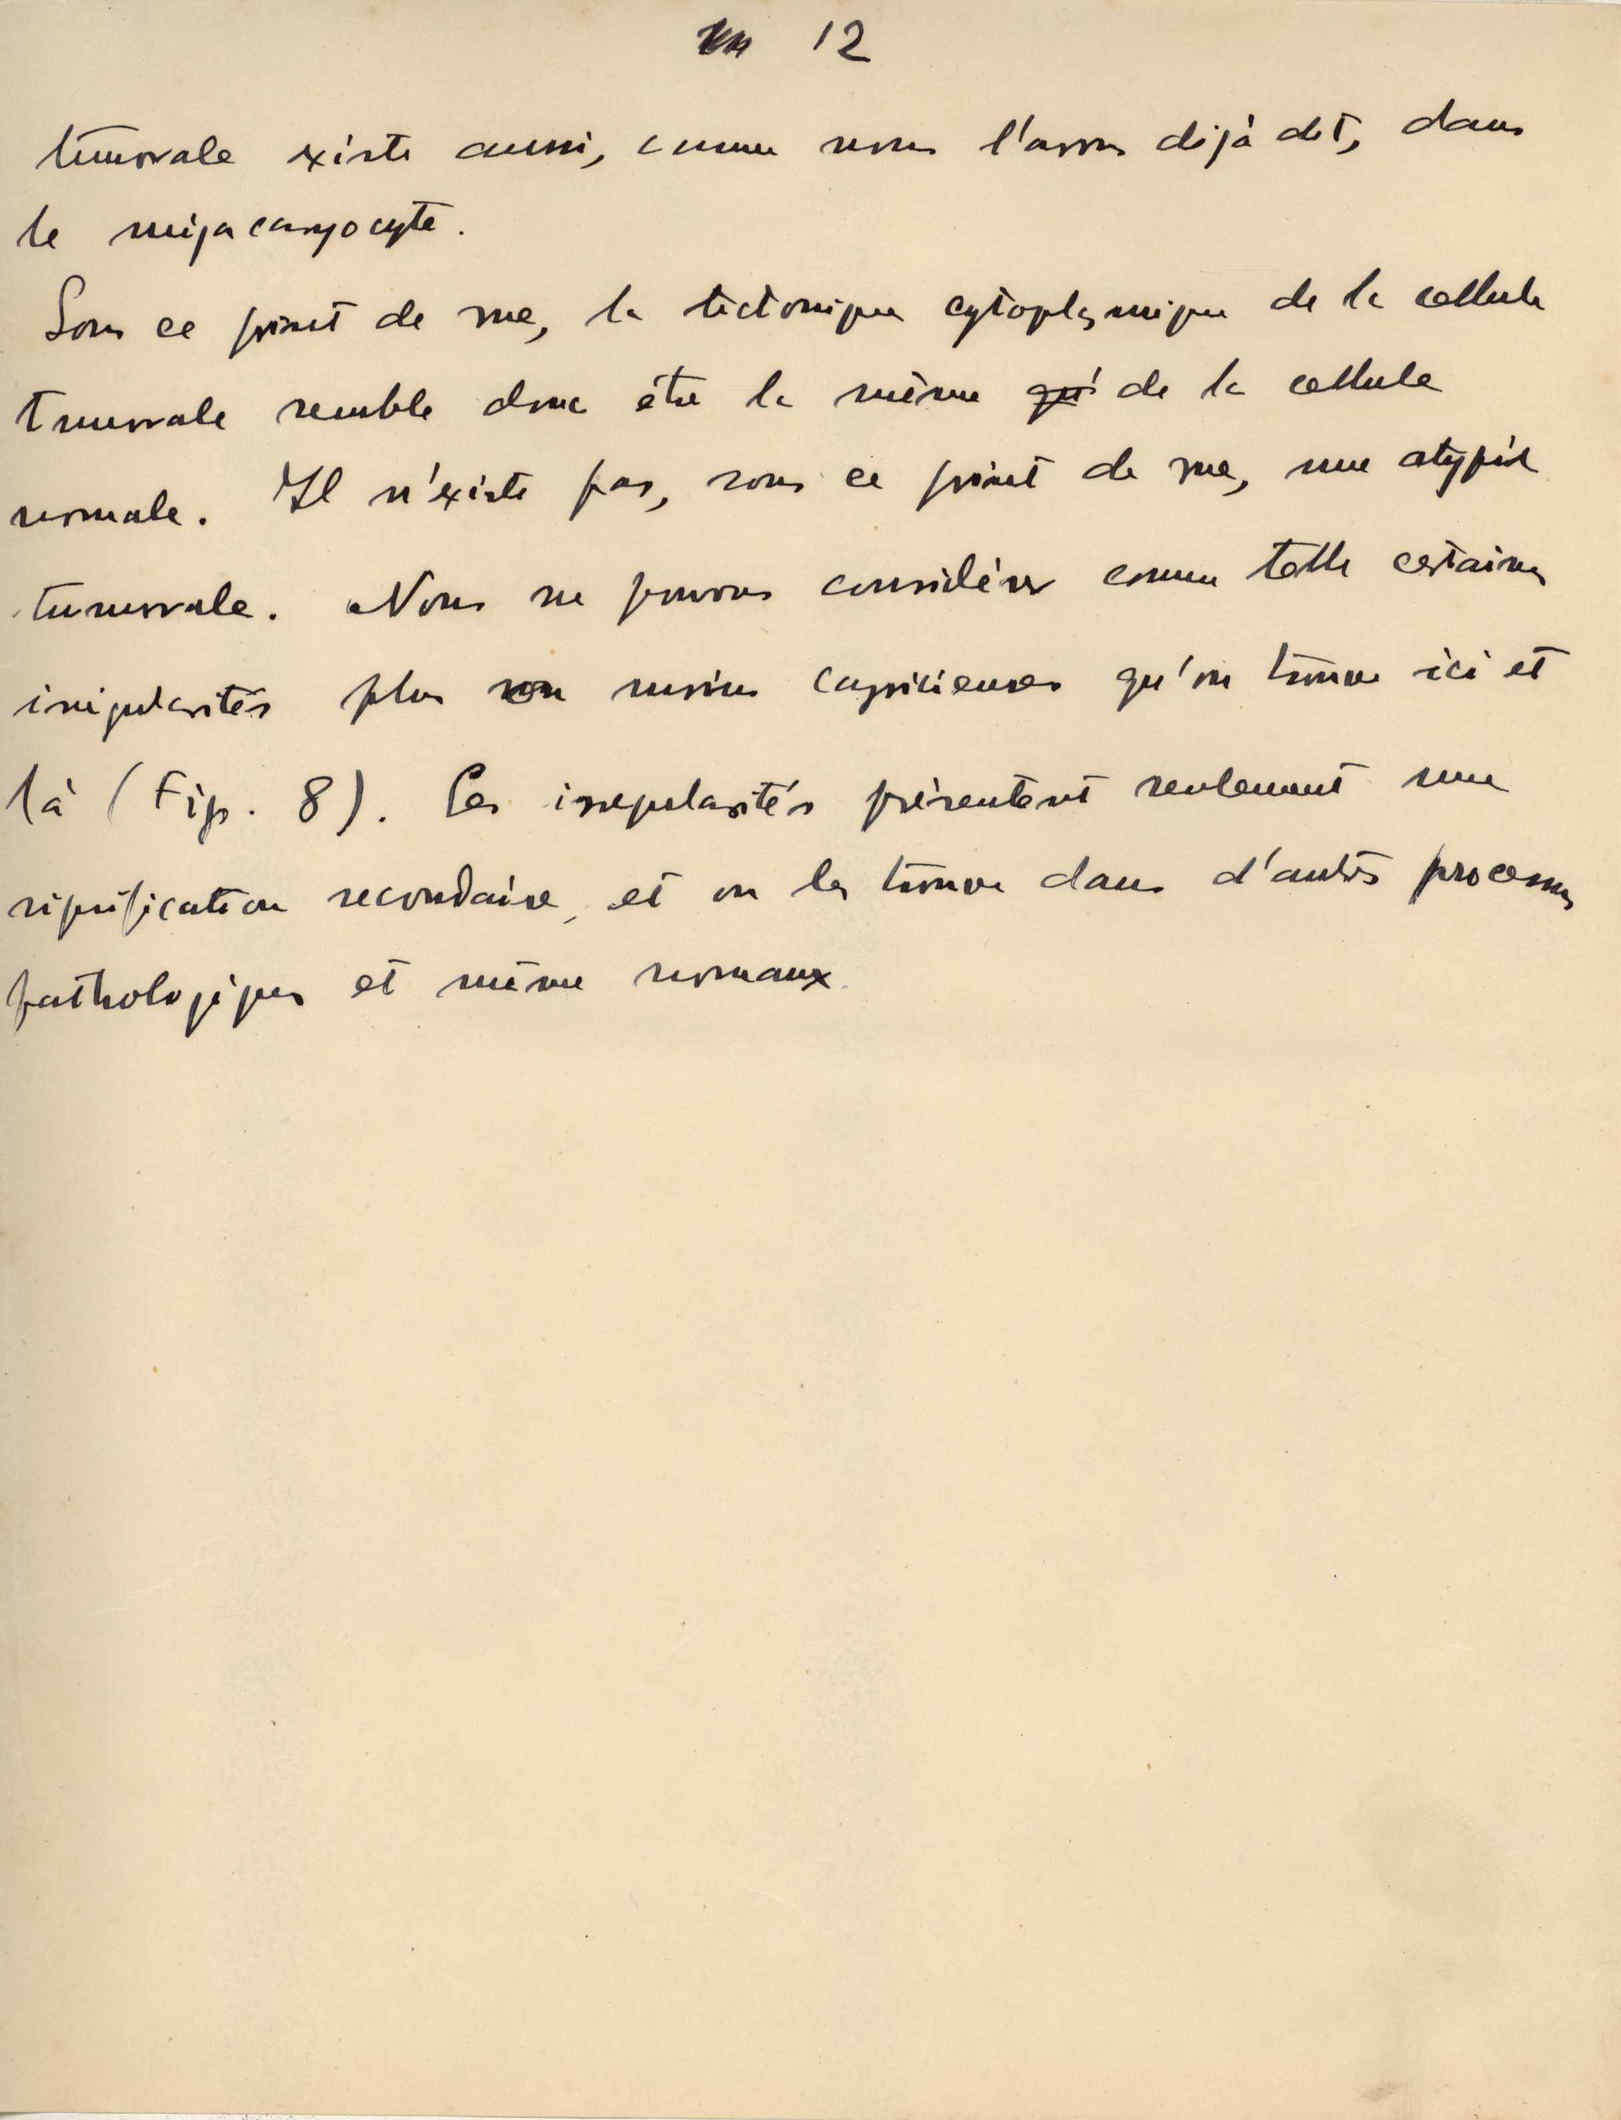 12
tumorale existe aussi, comme nous l'avons déjà dit, dans
le mégacaryocyte.
Sous ce point de vue, la tectonique cytoplasmique de la cellule
tumorale semble donc être la même qui de la cellule
normale. Il n'existe pas, sous ce point de vue, une atypie
tumorale. Nous ne pouvons considérer comme telle certaines
irrégularités plus ou moins capricieuses qu'on trouve ici et
là (Fig. 8). Ces irregularités présentent seulement une
signification secondaire, et on les trouve dans d'autres processus
pathologiques et même normaux.